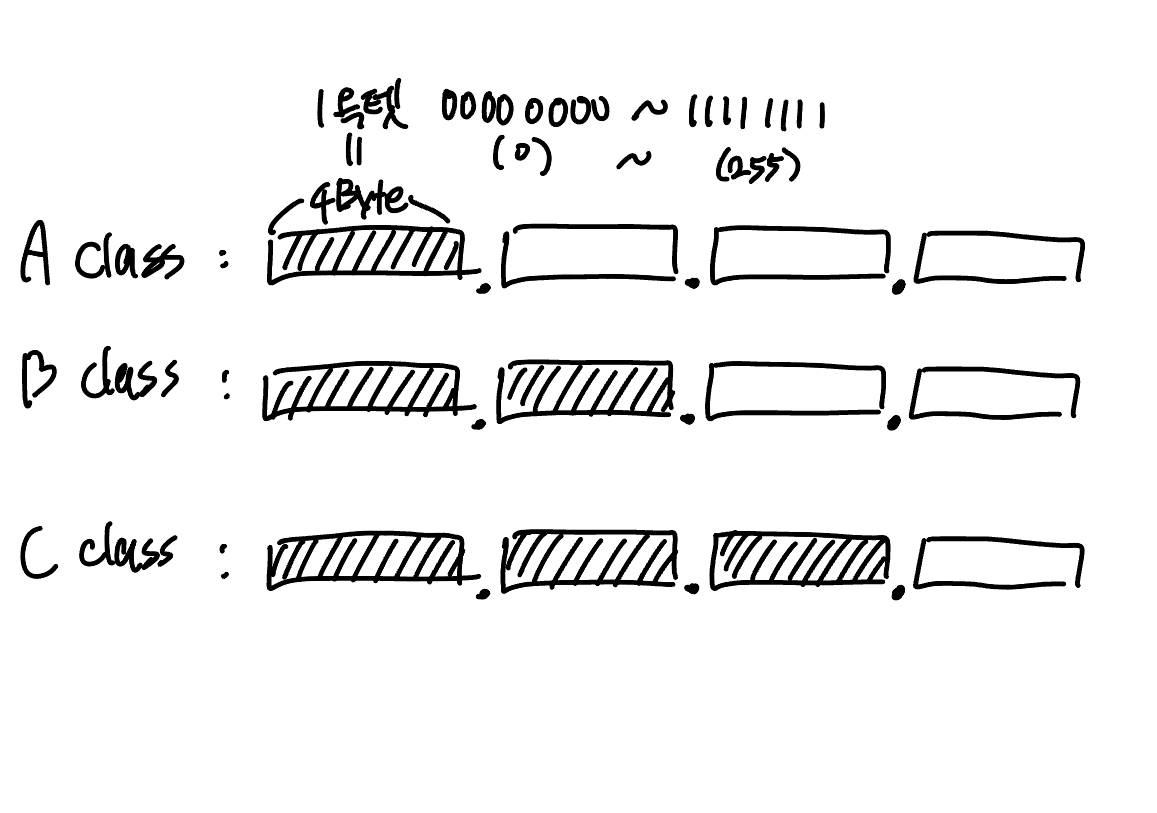 1옥텟 0000 0000 ~ 1111 1111
= (0) ~ (255)
4Byte
A class :
B class :
C class :